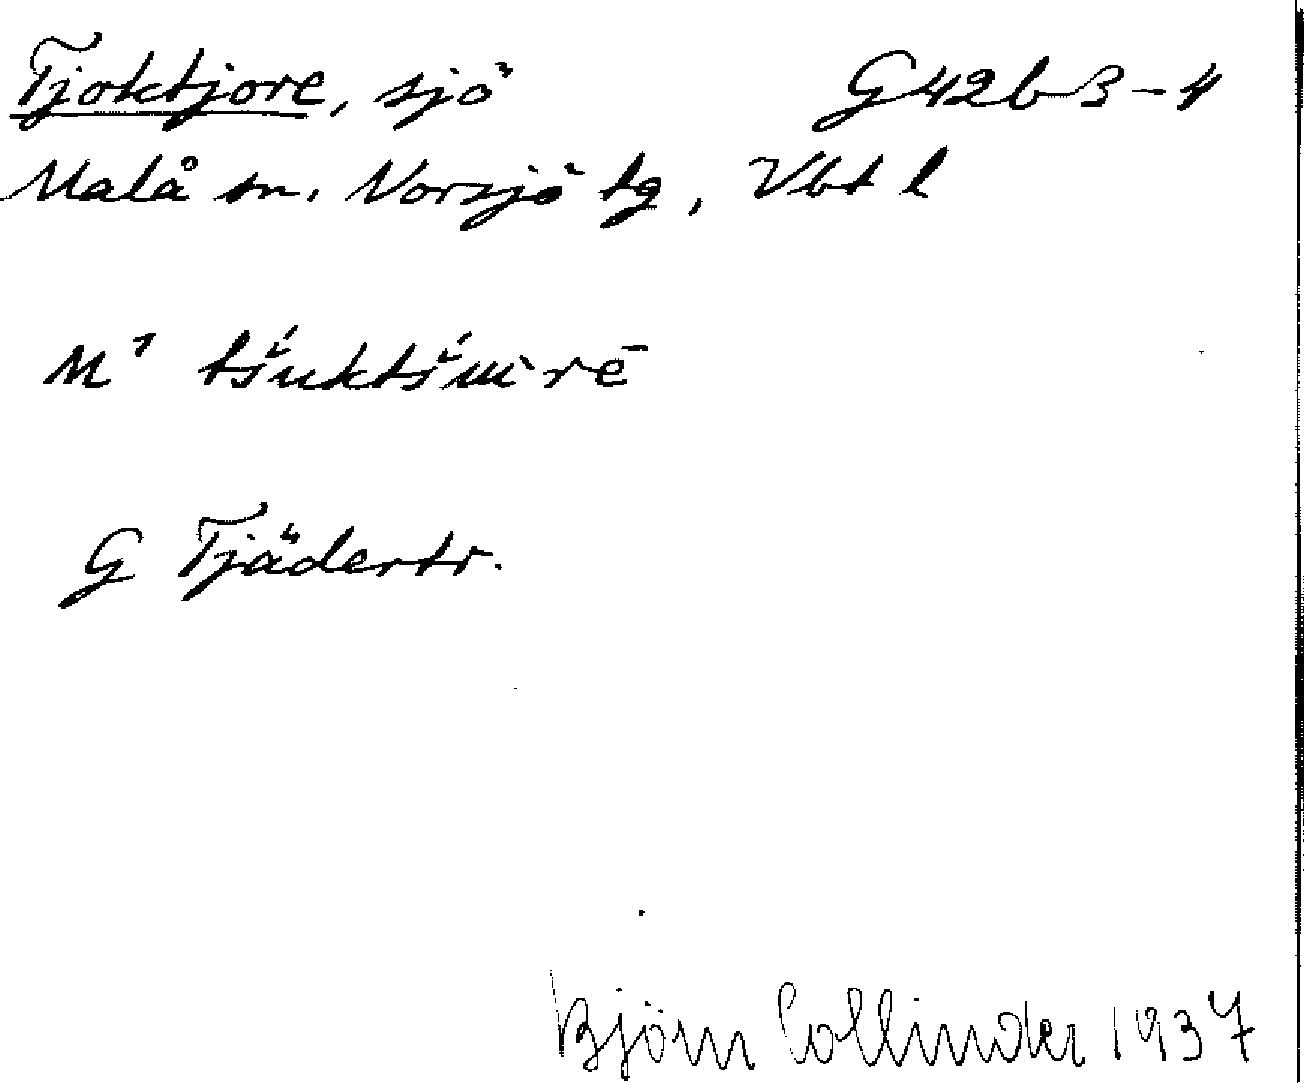 Tjoktjore, sjö G42b3-4
Malå sn. Norsjö tg, Vbt l
G Tjädertr.
Björn Collinder 1937